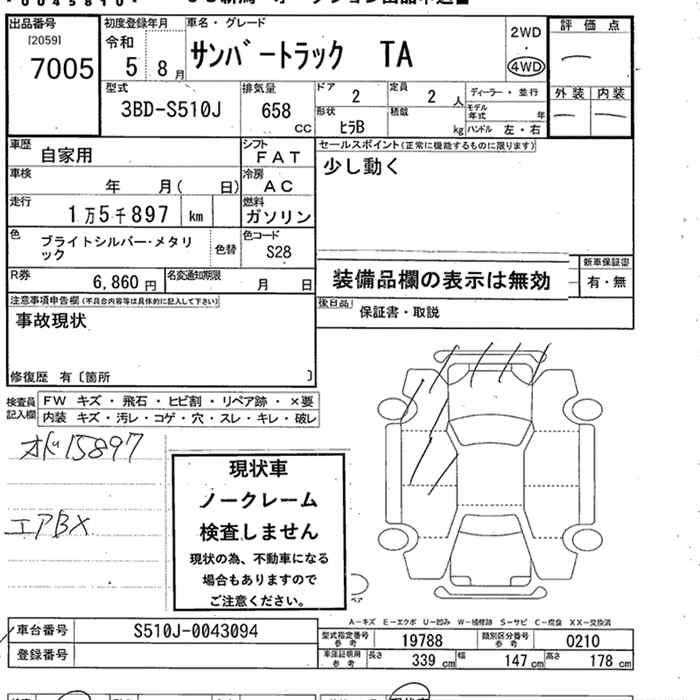 出品番号
[2059]
7005
初度登録年月
令和
5 8月
車名・グレード
サンバートラック TA
2WD
・
4WD
評価点
外装 内装
型式
3BD-S510J
排気量
658
CC
ドア
2
定員
2人
形状
ヒラB
積載
kg
ディーラー・並行
モデル年式 年
ハンドル 左・右
車歴
自家用
シフト
FAT
セールスポイント(正常に機能するものに限ります)
少し動く
車検
年 月( 日)
冷房
AC
走行
1万5千897 km
燃料
ガソリン
色
ブライトシルバー・メタリ
ック
色替
色コード
S28
R券
6,860円
名変通知期限
月 日
装備品欄の表示は無効
新車保証書
有・無
注意事項申告欄(不具合内容等は具体的に記入して下さい)
事故現状
後日品
保証書・取説
修復歴 有〔箇所 〕
検査員
記入欄
FW キズ・飛石・ヒビ割・リペア跡・×要
内装 キズ・汚レ・コゲ・穴・スレ・キレ・破レ
オド15897
エアBX
現状車
ノークレーム
検査しません
現状の為、不動車になる
場合もありますので
ご注意ください。
A-キズ E-エクボ U-凹み W-補修跡 S-サビ C-腐食 XX-交換済
車台番号
S510J-0043094
登録番号
型式指定番号
参考
19788
類別区分番号
参考
0210
車庫証明用
参考
長さ
339cm
幅
147cm
高さ
178cm